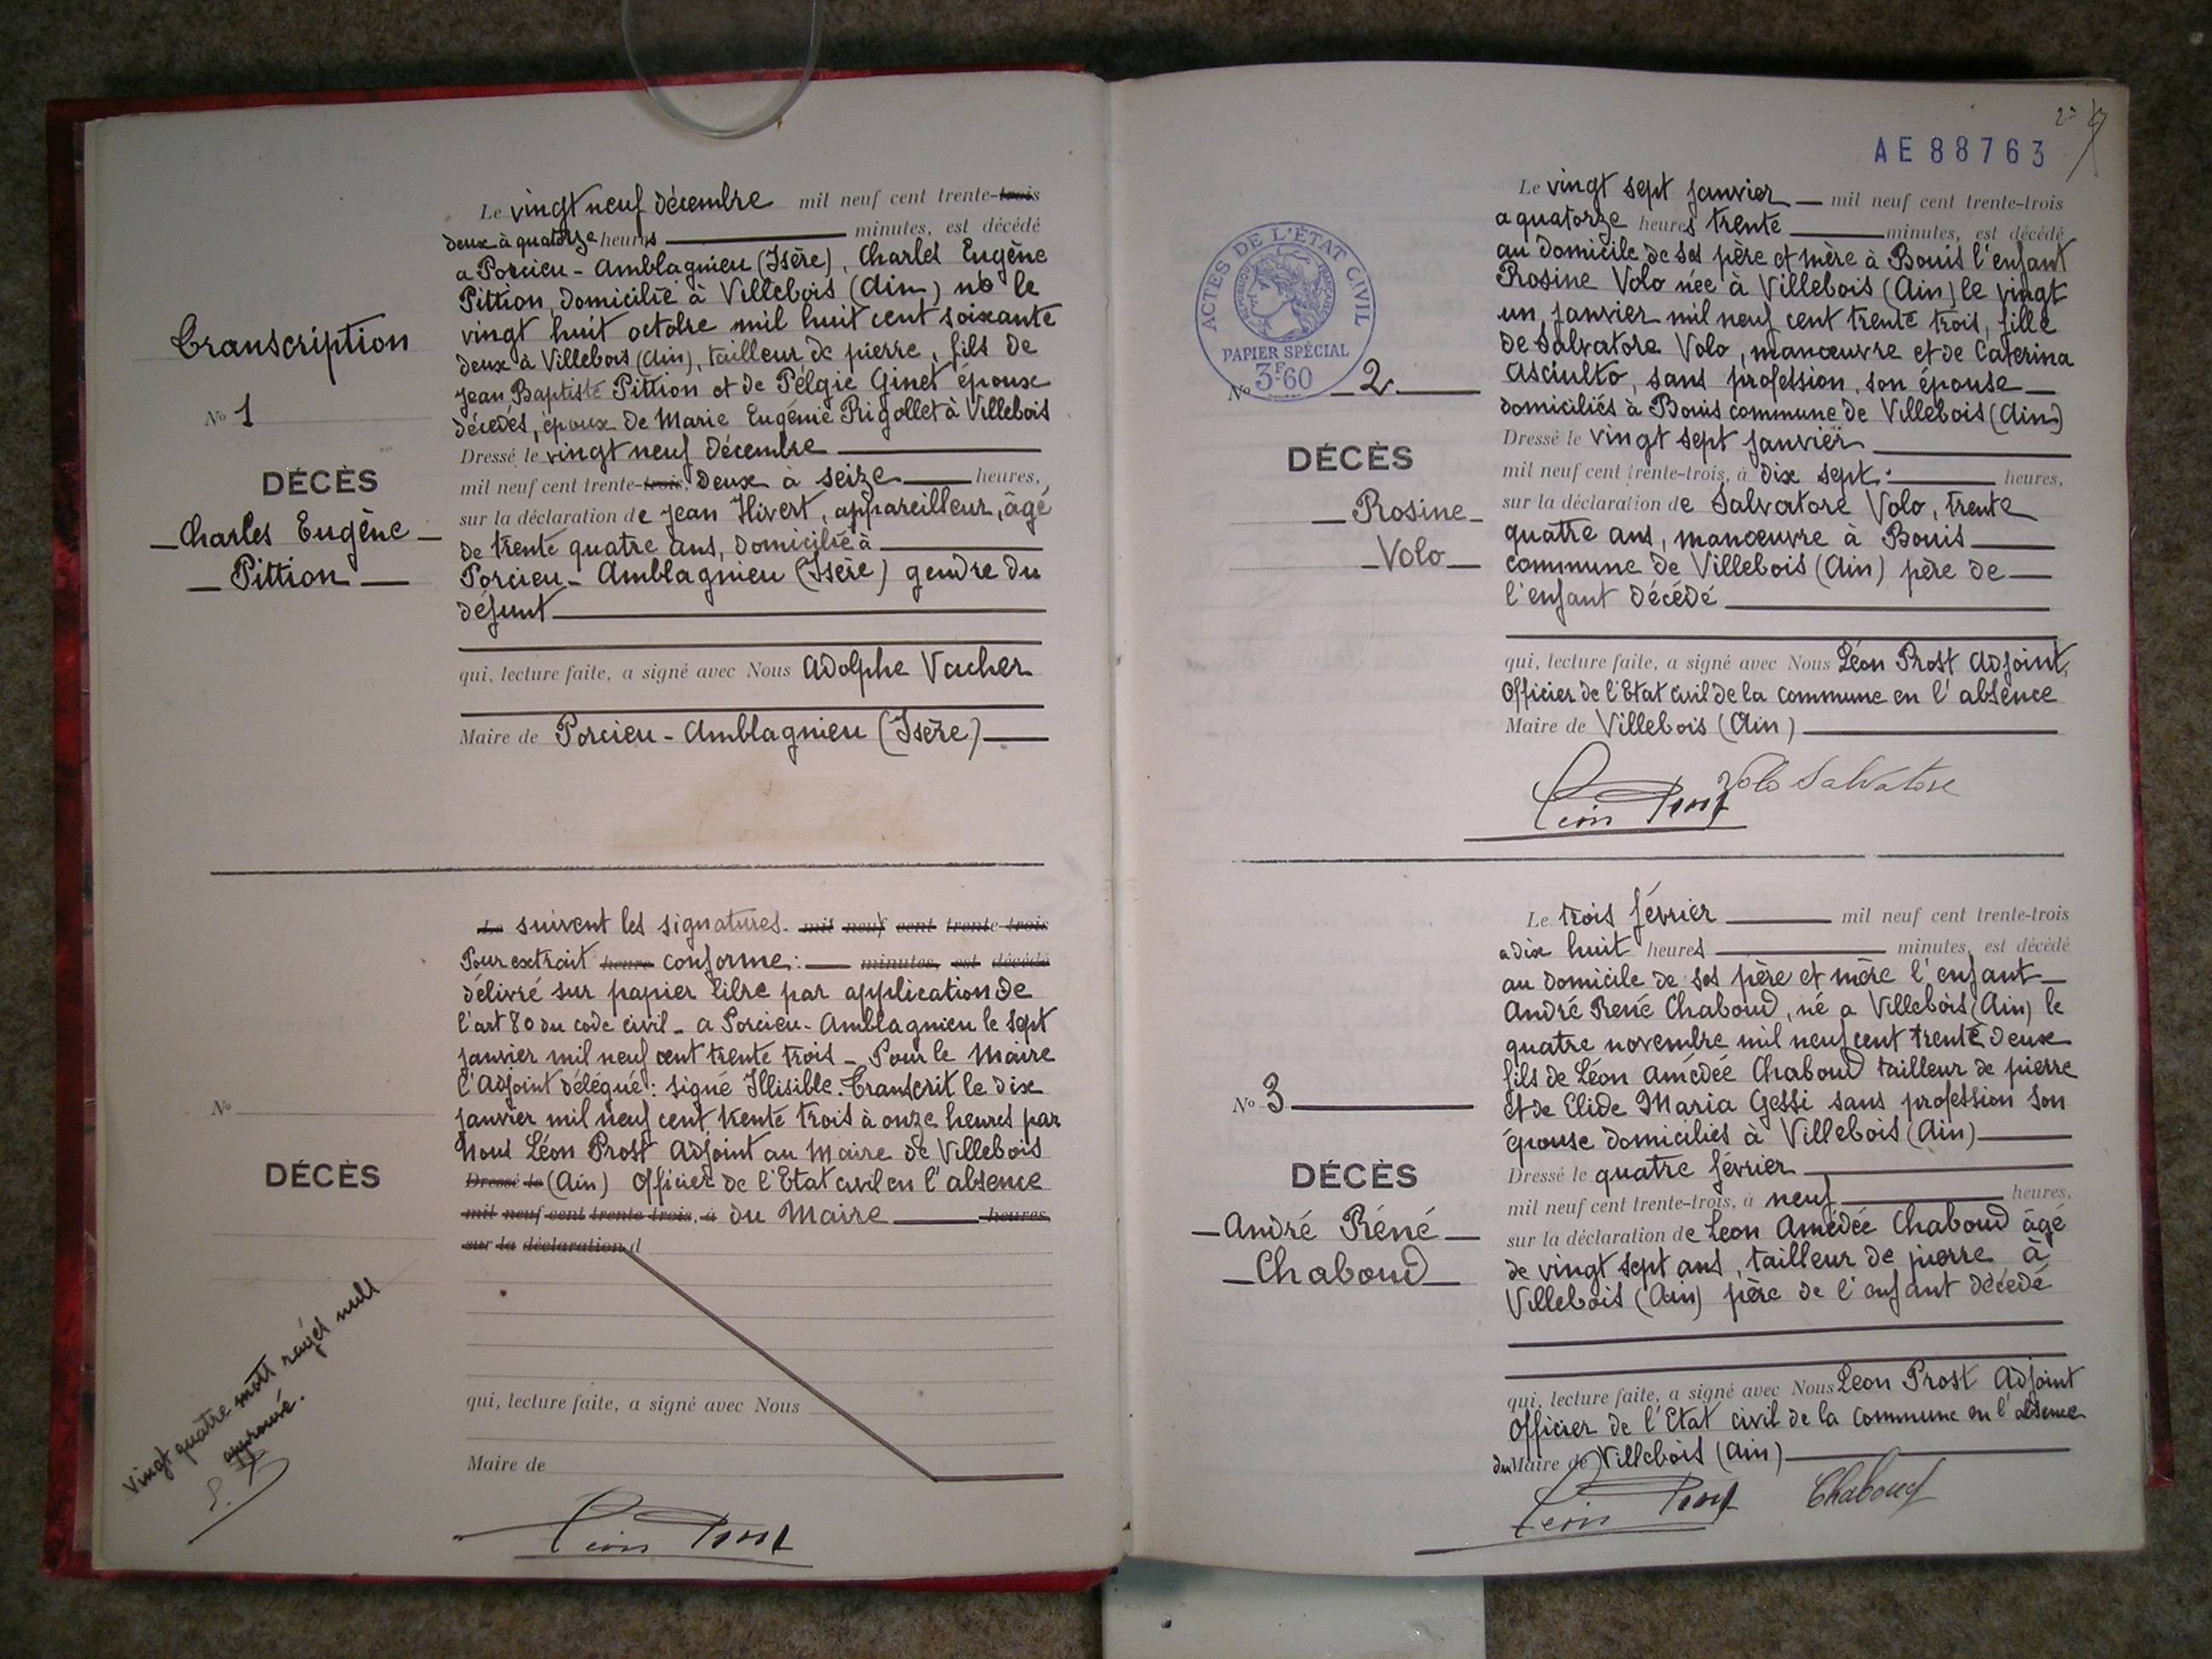 Transcription
N° 1
DÉCÈS
Charles Eugène
Pittion
Le vingt neuf décembre mil neuf cent trente-trois
deux à quatorze heures minutes, est décédé
a Porcieu-Amblagnieu (Isère), Charles Eugène
Pittion, domicilié à Villebois (Ain) né le
vingt huit octobre mil huit cent soixante
deux à Villebois (Ain), tailleur de pierre, fils de
Jean Baptiste Pittion et de Pélgie Ginet époux
décédés, époux de Marie Eugénie Rigollet à Villebois
Dressé le vingt neuf Décembre
mil neuf cent trente-trois, deux à seize heures,
sur la déclaration de Jean Hivert, appareilleur, âgé
de trente quatre ans, domicilié à
Porcieu-Amblagnieu (Isère) gendre du
défunt
qui, lecture faite, a signé avec Nous Adolphe Vacher
Maire de Porcieu-Amblagnieu (Isère)
N°
DÉCÈS
Le suivent les signatures. mil neuf cent trente-trois
Pour extrait heure conforme: minutes, est décédé
délivré sur papier libre par application de
l'art 80 du code civil - a Porcieu-Amblagnieu le sept
janvier mil neuf cent trente trois - Pour le Maire
l'Adjoint délégué: signé Illisible. Transcrit le dix
janvier mil neuf cent trente trois à onze heures par
Nous Léon Prost Adjoint au Maire de Villebois
Dressé le (Ain) Officier de l'Etat civil en l'absence
mil neuf cent trente-trois, à du Maire heures,
sur la déclaration d
qui, lecture faite, a signé avec Nous
Maire de
Vingt quatre mots rayés nuls
approuvé.
L. P
Léon Prost
AE88763
23
ACTES DE L'ÉTAT CIVIL
PAPIER SPÉCIAL
3F60
N° 2
DÉCÈS
Rosine
Volo
Le vingt sept janvier mil neuf cent trente-trois
a quatorze heures trente minutes, est décédé
au domicile de ses père et mère à Bouis l'enfant
Rosine Volo née à Villebois (Ain) le vingt
un janvier mil neuf cent trente trois, fille
de Salvatore Volo, manœuvre et de Caterina
Asciulto, sans profession, son épouse
domiciliés à Bouis commune de Villebois (Ain)
Dressé le vingt sept janvier
mil neuf cent trente-trois, à dix sept heures,
sur la déclaration de Salvatore Volo, trente
quatre ans, manœuvre à Bouis
commune de Villebois (Ain) père de
l'enfant décédé
qui, lecture faite, a signé avec Nous Léon Prost Adjoint,
Officier de l'Etat civil de la commune en l'absence
Maire de Villebois (Ain)
Volo Salvatore
Léon Prost
N° 3
DÉCÈS
André Réné
Chaboud
Le trois février mil neuf cent trente-trois
a dix huit heures minutes, est décédé
au domicile de ses père et mère l'enfant
André René Chaboud, né a Villebois (Ain) le
quatre novembre mil neuf cent trente deux
fils de Léon Amédée Chaboud tailleur de pierre
et de Elide Maria Gessi sans profession son
épouse domiciliés à Villebois (Ain)
Dressé le quatre février
mil neuf cent trente-trois, à neuf heures,
sur la déclaration de Léon Amédée Chaboud âgé
de vingt sept ans, tailleur de pierre à
Villebois (Ain) père de l'enfant décédé
qui, lecture faite, a signé avec Nous Léon Prost Adjoint
Officier de l'Etat civil de la Commune en l'absence
du Maire de Villebois (Ain)
Léon Prost Chaboud